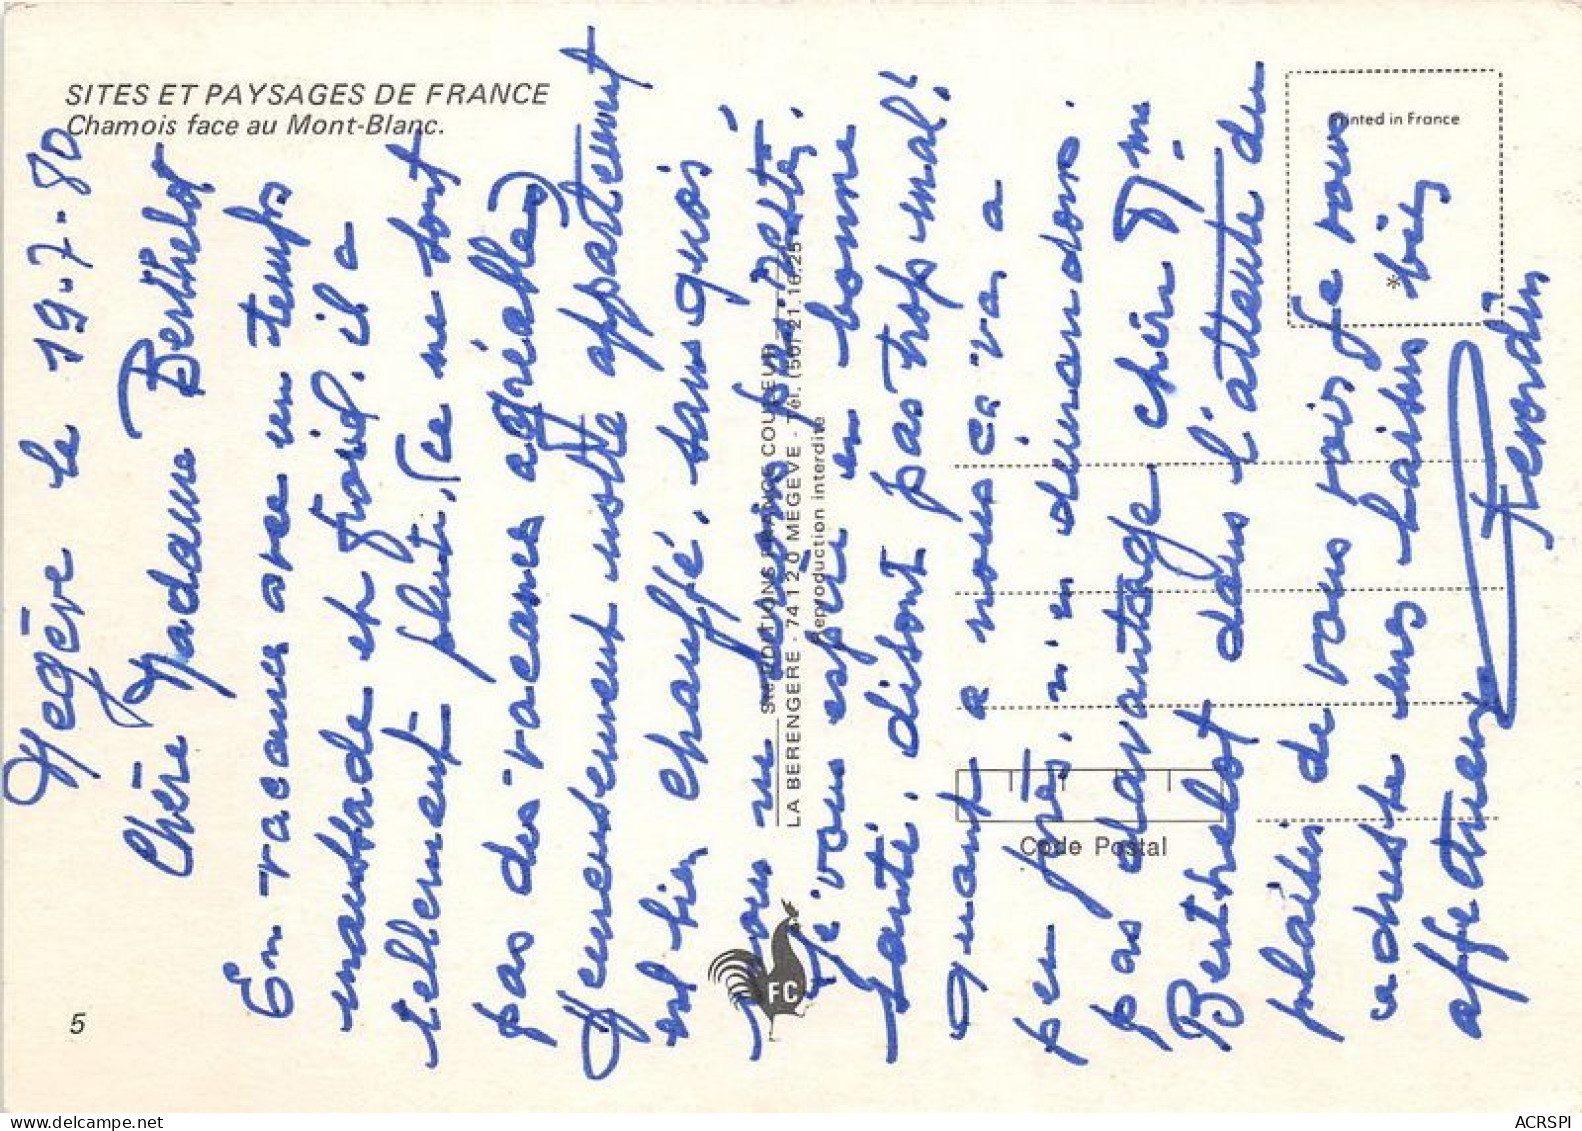 SITES ET PAYSAGES DE FRANCE
Chamois face au Mont-Blanc.
Printed in France
5
FC
Sté EDITIONS FRANCE COULEUR
LA BERENGERE - 74120 MEGEVE - Tél. (50) 21.16.25
Reproduction interdite
Code Postal
Megève le 19.7.80
Chère Madame Berthelot
En vacances avec un temps
maussade et froid. il a
tellement plut, (ce ne sont
pas des vacances agréables)
Heureusement notre appartement
est bien chauffé, sans quoi
nous ne ferions pas resté.
Je vous espère en bonne
santé, disont pas trop mal!
Quant a nous ça va a
peu près, n'en demandons
pas davantage, chère Mme
Berthelot dans l'attente du
plaisir de vous vois je vous
adresse mes baisers bien
affectueux
ACRSPI